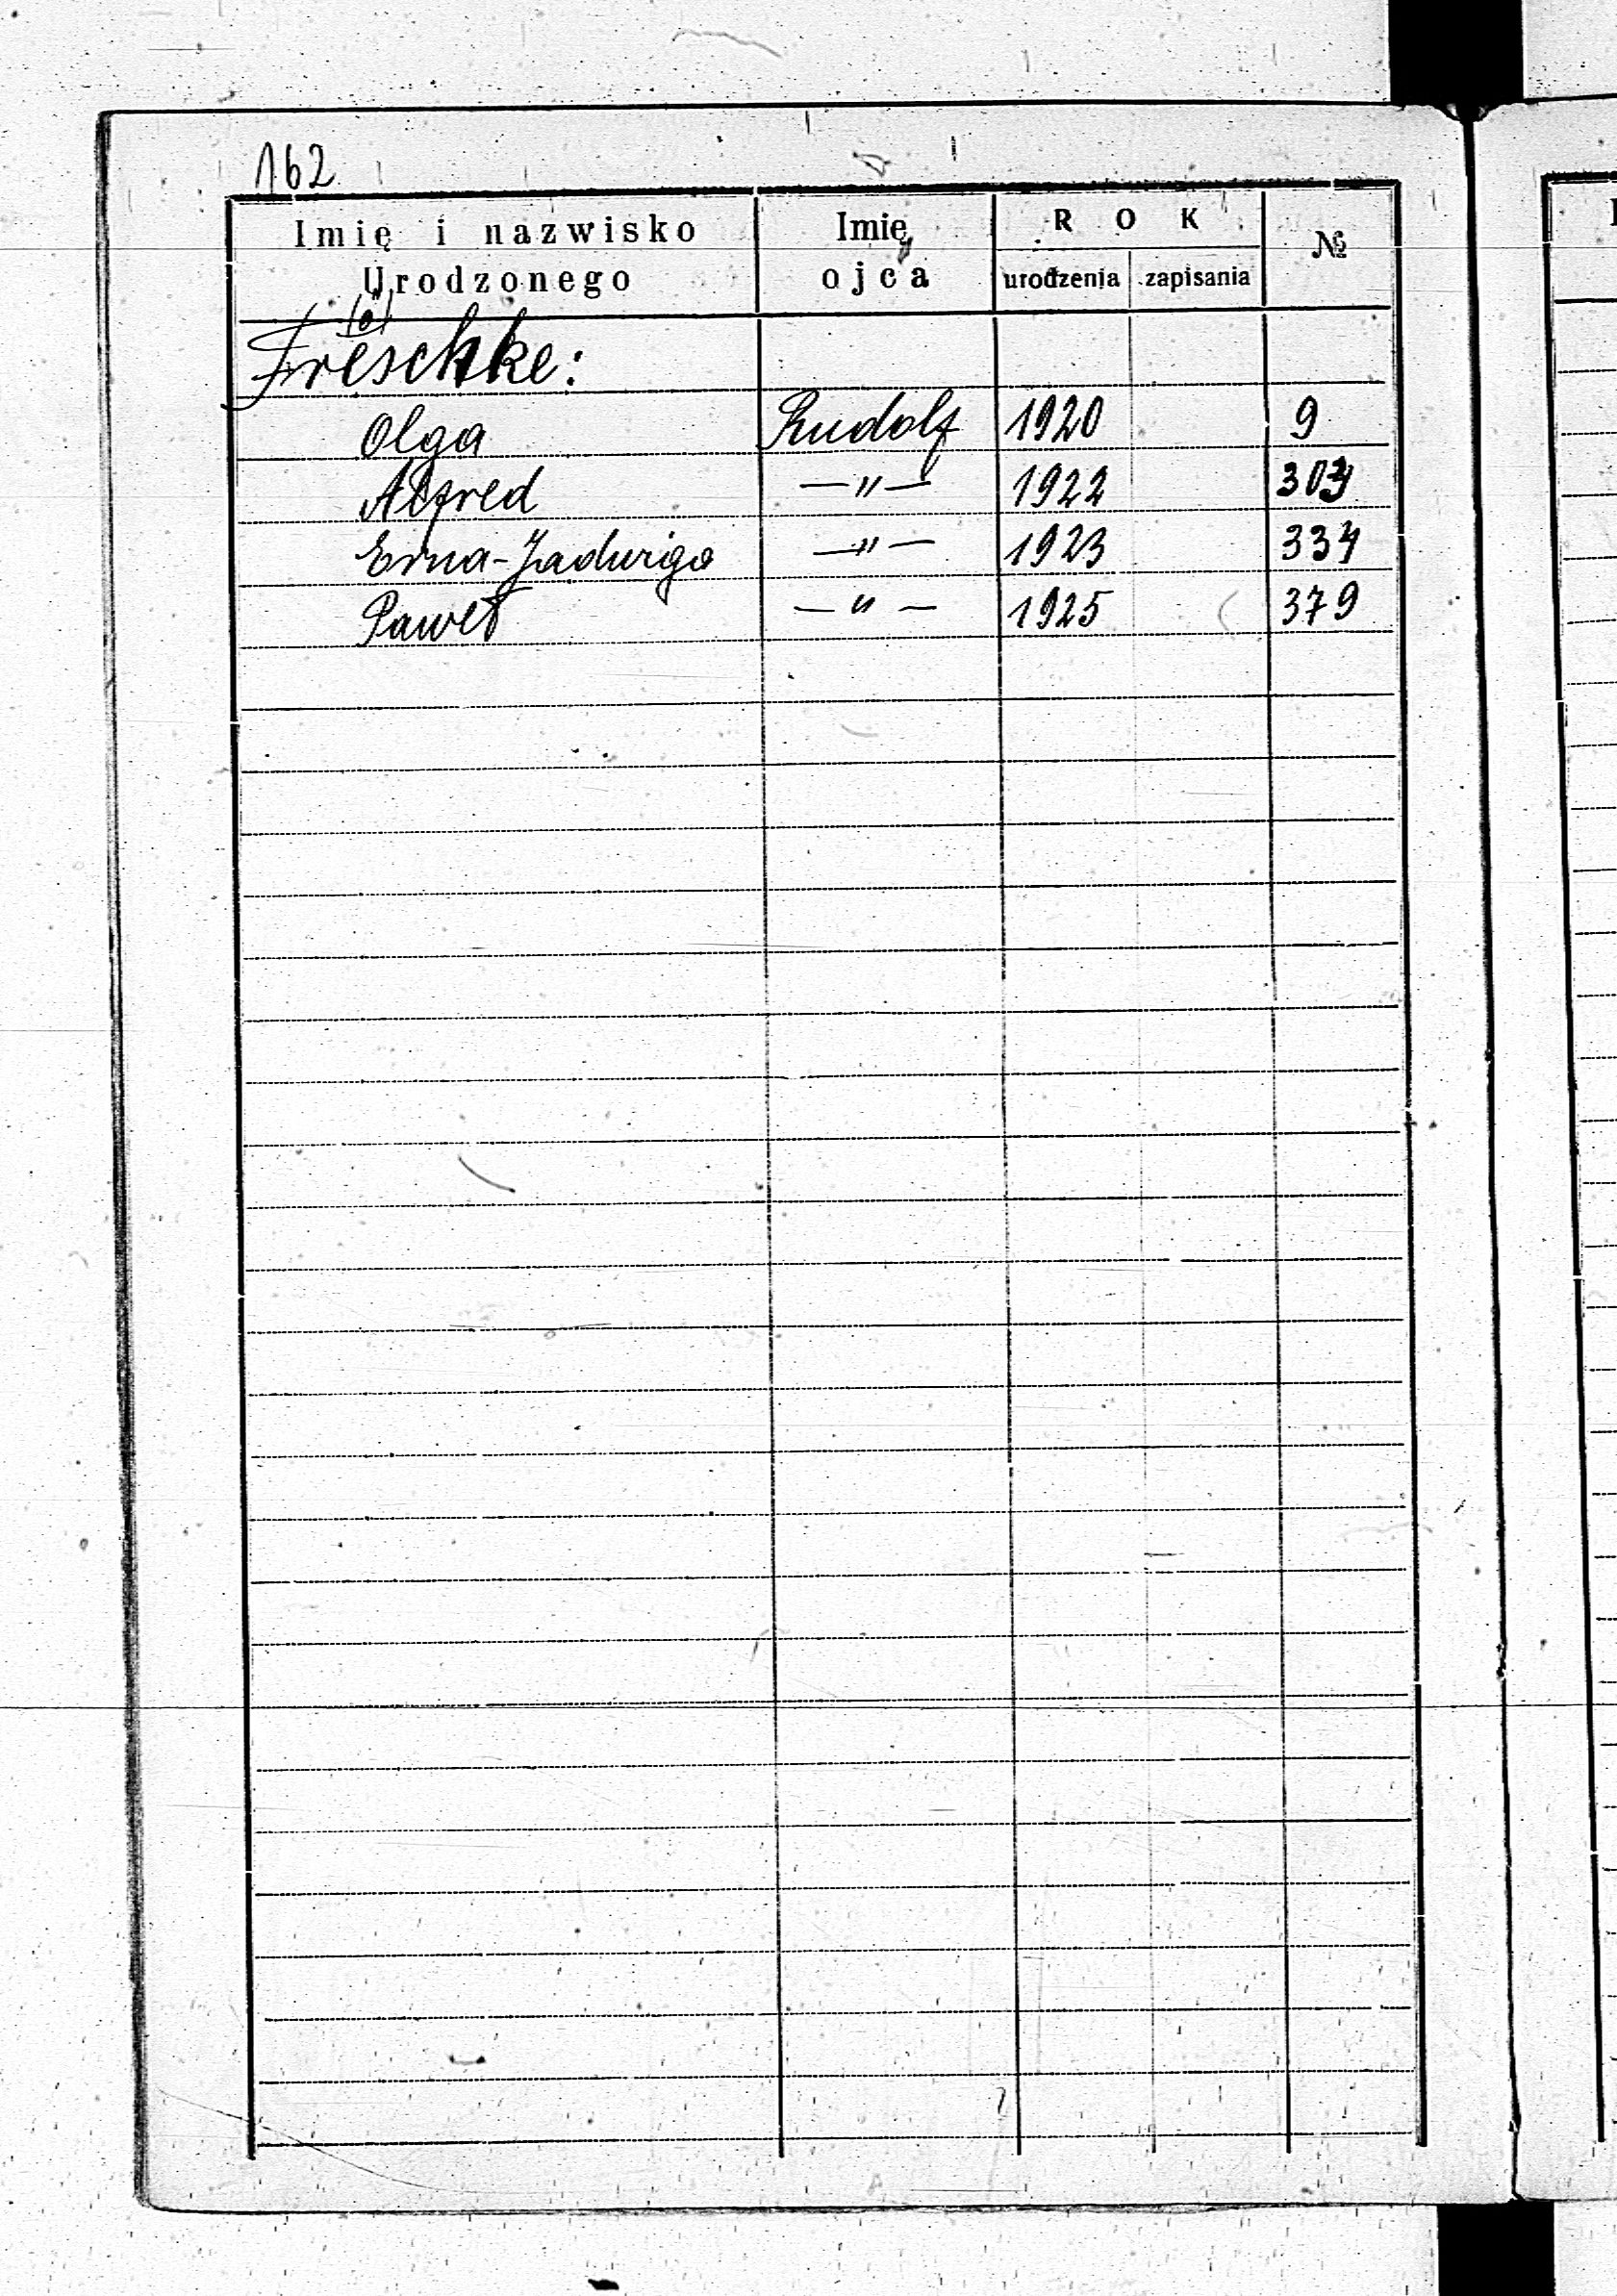 162
Imię i nazwisko Urodzonego Imię ojca ROK urodzenia zapisania №
(ö)
Freschke:
Olga Rudolf 1920 9
Alfred —"— 1922
Erna-Jadwiga —"— 1923 334
Paweł —"— 1925 379